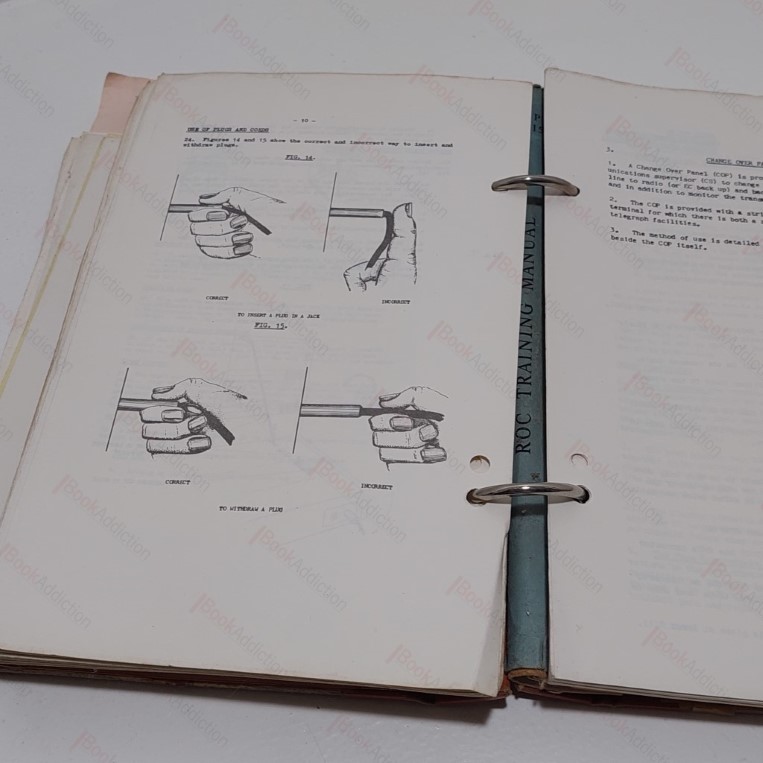 - 90 -
USE OF PLUGS AND CORDS
34. Figures 14 and 15 show the correct and incorrect way to insert and
withdraw plugs.
FIG. 14.
CORRECT
INCORRECT
TO INSERT A PLUG IN A JACK
FIG. 15.
CORRECT
INCORRECT
TO WITHDRAW A PLUG
ROC TRAINING MANUAL
3.
CHANGE OVER
1. A Change Over Panel (COP) is
unications supervisor (CS) to change
line to radio (or EC back up) and
and in addition to monitor the
2. The COP is provided with a
terminal for which there is both a
telegraph facilities.
3. The method of use is detailed
beside the COP itself.
BookAddiction